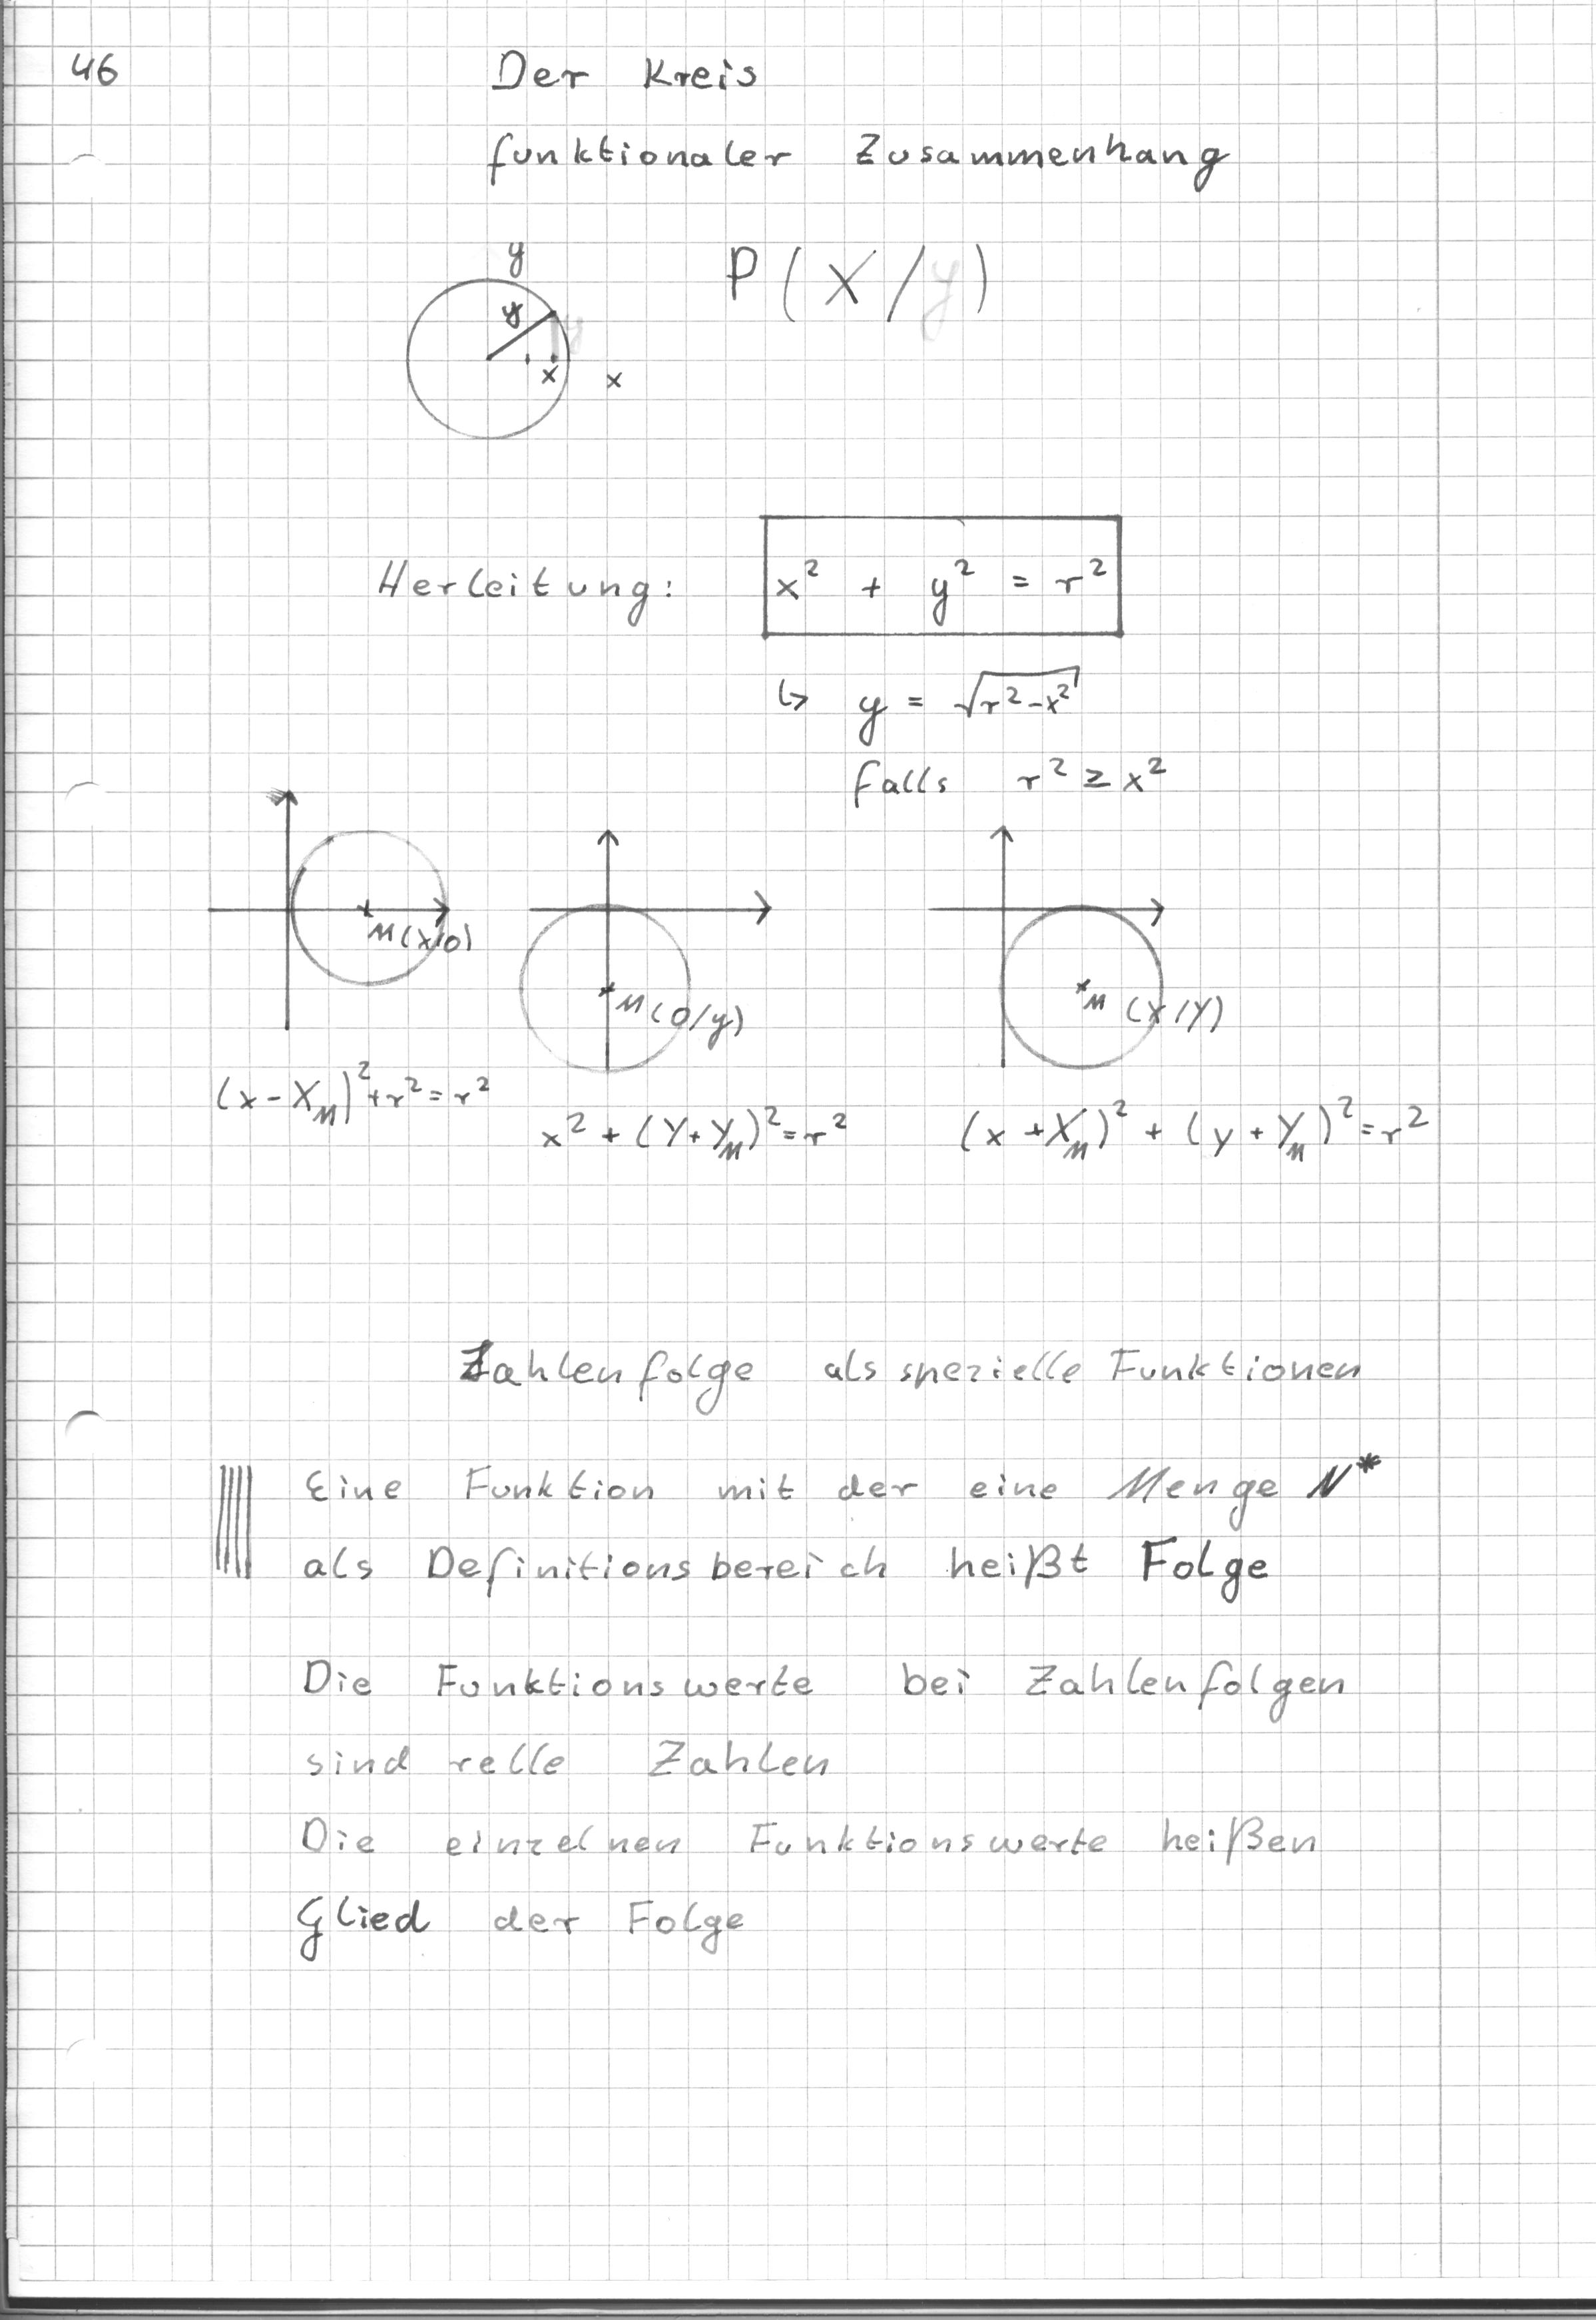 46
Der Kreis
funktionaler Zusammenhang
y
P(X/y)
y
x x
Herleitung: x² + y² = r²
↳ y = √(r²-x²)
falls r² ≥ x²
M(X/0)
M(0/y)
M (X/Y)
(x-X_M)²+r²=r²
x²+(Y+Y_M)²=r²
(x+X_M)² + (y+Y_M)²=r²
Zahlenfolge als spezielle Funktionen
Eine Funktion mit der eine Menge N*
als Definitionsbereich heißt Folge
Die Funktionswerte bei Zahlenfolgen
sind relle Zahlen
Die einzelnen Funktionswerte heißen
Glied der Folge